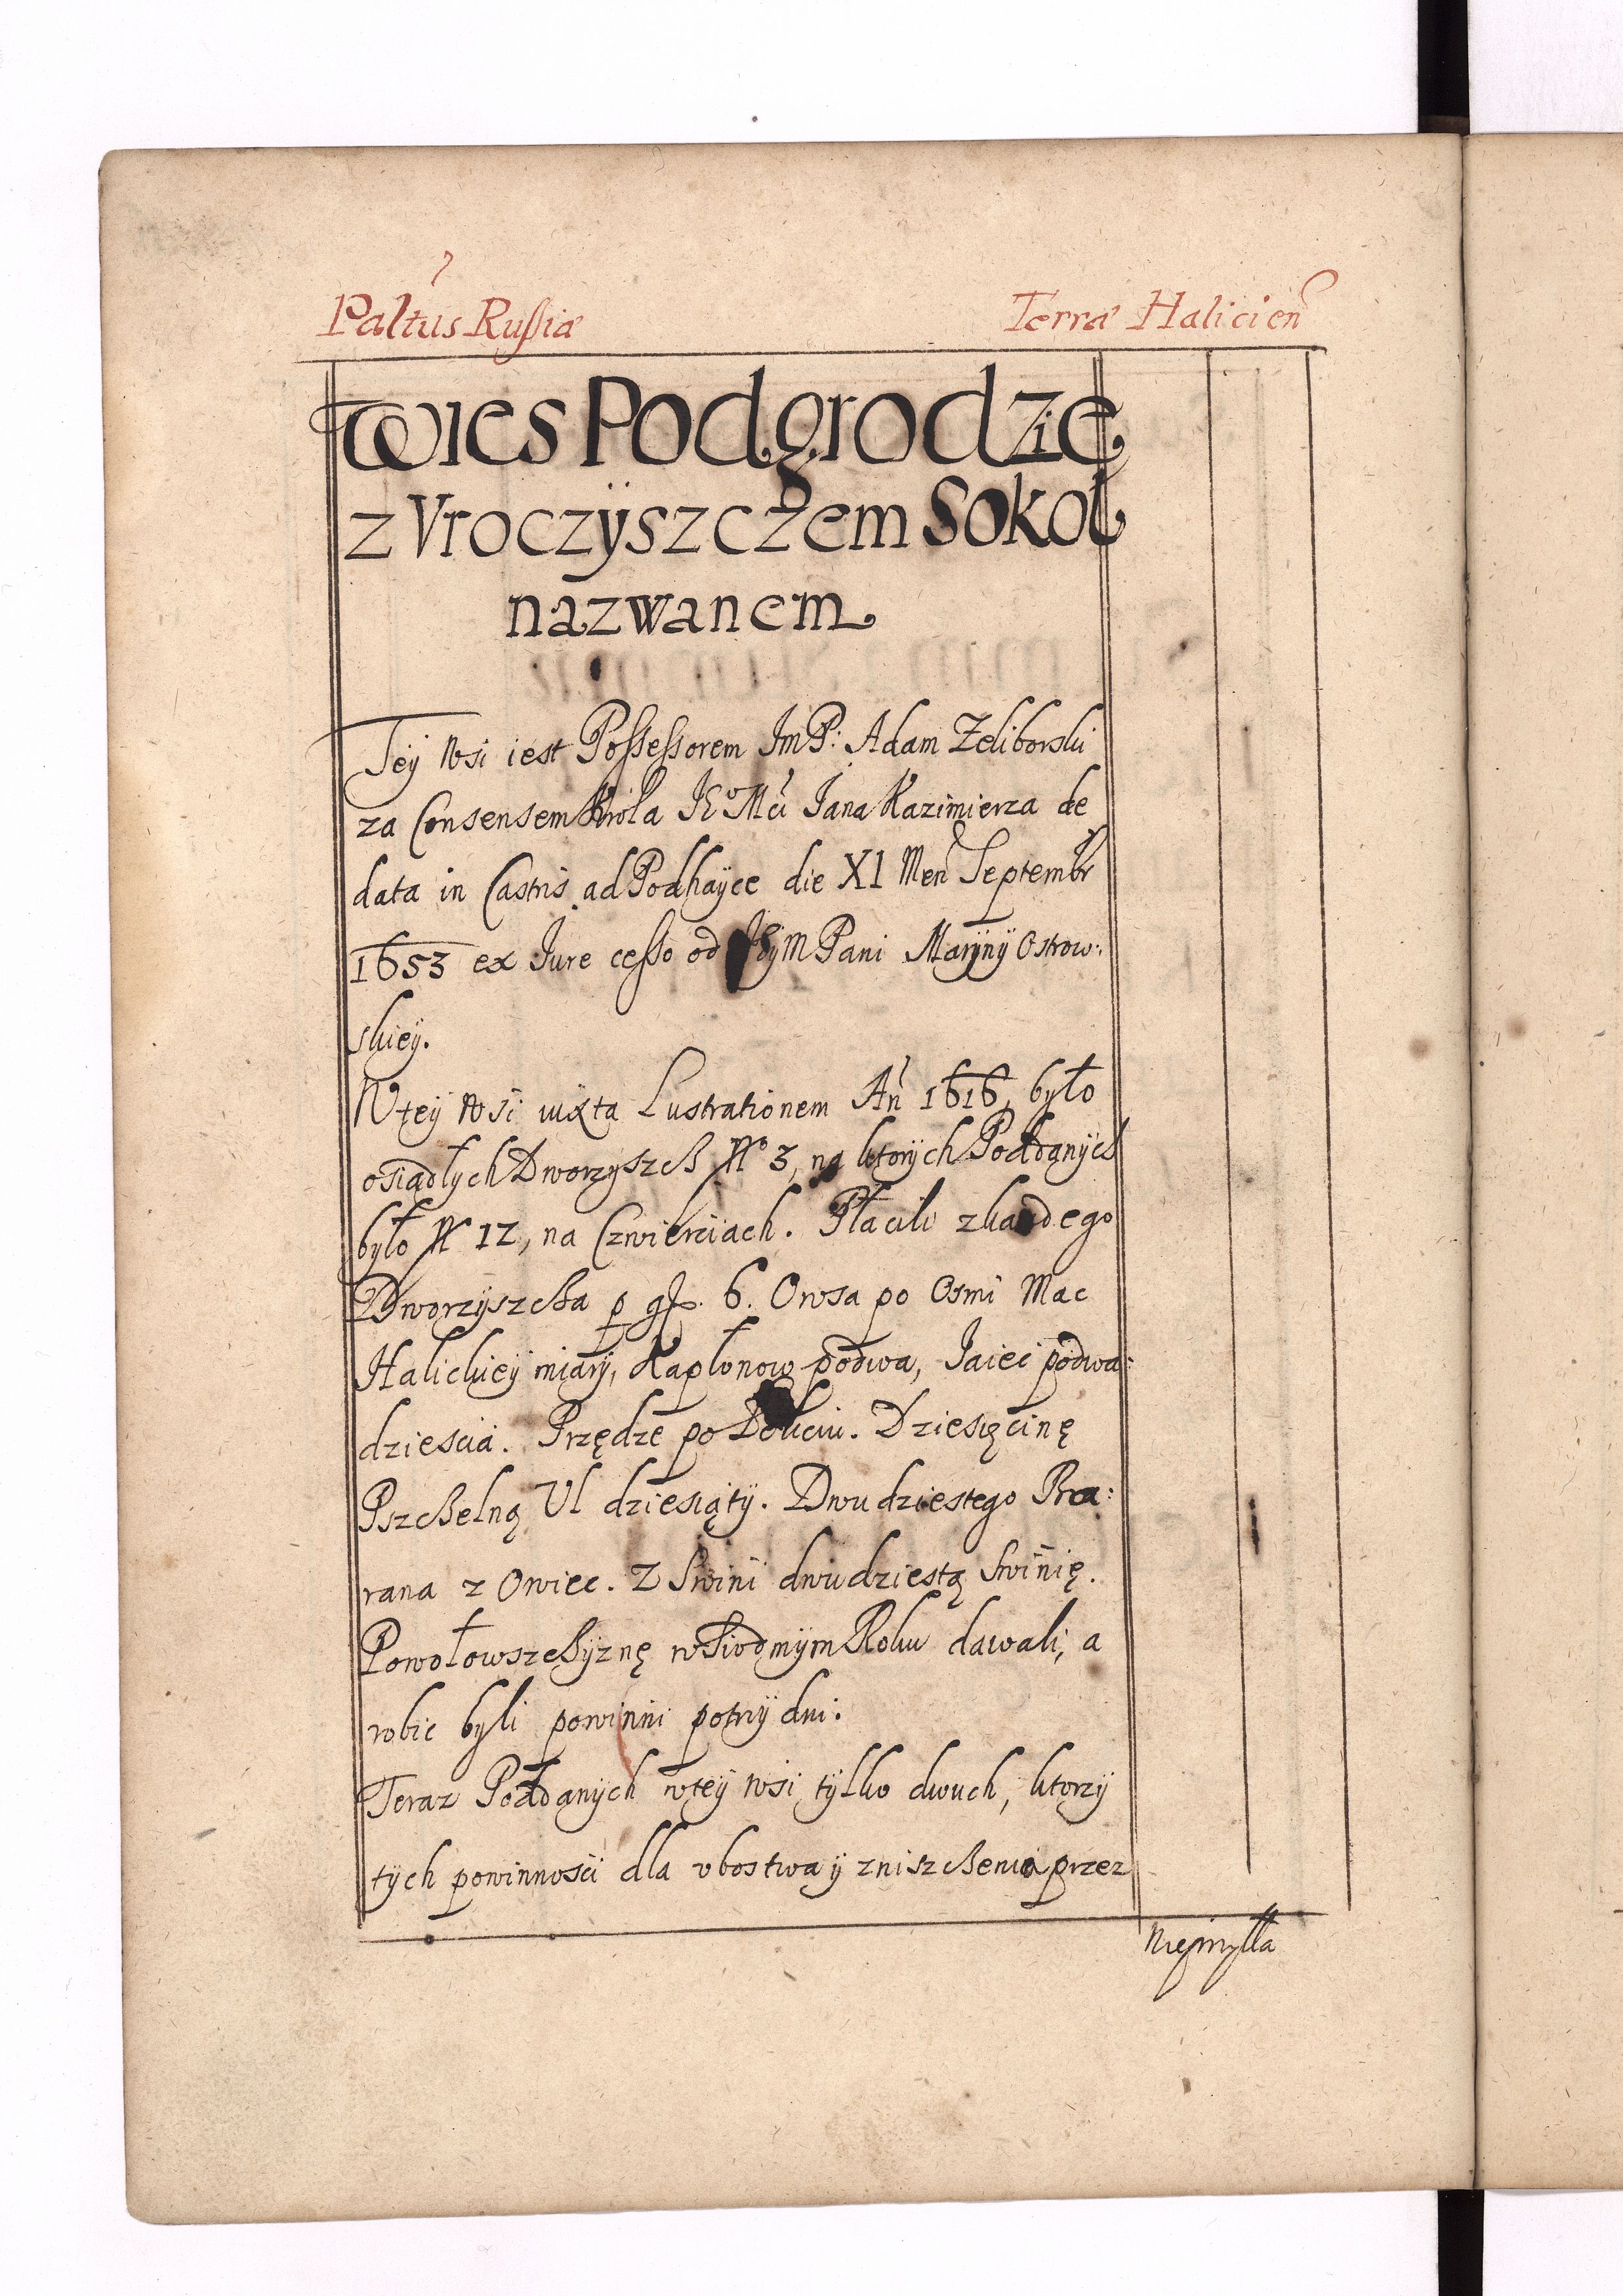 Paltus Russiæ
Terræ Halicien
Wies Podgrodzie
z Vroczÿszczem Sokoł
nazwanem
Teÿ Wsi iest Possessorem JmP: Adam Zeliborski
za Consensem Krola JE°Mći Jana Kazimierza de
data in Castris ad Podhaÿce die XI Men Septembr
1653 ex Jure cesso od JEÿM Pani Marÿnÿ Ostrow:
skieÿ.
W teÿ Wsi iuxta Lustrationem An 1616, było
osiadłych Dworzyszcz N° 3, na ktorÿch Poddanÿch
było N 12, na Czwierciach. Płacili z kazdego
Dworzÿszcza p gr. 6. Owsa po Osmi Mac
Halickieÿ miarÿ, Kapłonow po dwa, Jaiec po dwa:
dziescia. Przędze po Łokciu. Dziesięcinę
Pszczelną Ul dziesiątÿ. Dwudziestego Ba:
rana z Owiec. Z Swini dwudziestą Swinię.
Powołowszczÿznę w Siodmÿm Roku dawali, a
robic byli powinni po trzÿ dni.
Teraz Poddanÿch w teÿ Wsi tÿlko dwuch, ktorzÿ
tÿch powinnosci dla vbostwa ÿ zniszczenia przez
Nieprzyłła